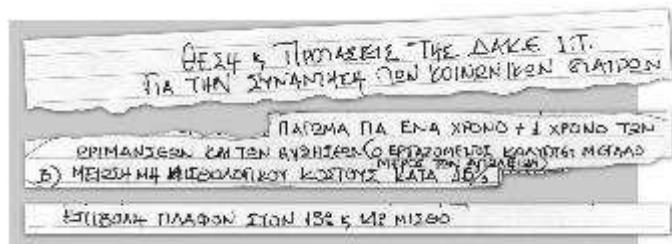 ΘΕΣΗ & ΠΡΟΤΑΣΕΙΣ ΤΗΣ ΔΑΚΕ Ι.Τ.
ΓΙΑ ΤΗΝ ΣΥΝΑΝΤΗΣΗ ΤΩΝ ΚΟΙΝΩΝΙΚΩΝ ΕΤΑΙΡΩΝ
ΠΑΓΩΜΑ ΓΙΑ ΕΝΑ ΧΡΟΝΟ + 1 ΧΡΟΝΟ ΤΩΝ
ΩΡΙΜΑΝΣΕΩΝ ΚΑΙ ΤΩΝ ΑΥΞΗΣΕΩΝ (Ο ΕΡΓΑΖΟΜΕΝΟΣ ΚΑΛΥΠΤΕΙ ΜΕΓΑΛΟ
ΜΕΡΟΣ ΤΩΝ ΑΠΩΛΕΙΩΝ)
Β) ΜΕΙΩΣΗ ΜΗ ΜΙΣΘΟΛΟΓΙΚΟΥ ΚΟΣΤΟΥΣ ΚΑΤΑ
ΕΠΙΒΟΛΗ ΠΛΑΦΟΝ ΣΤΟΝ 13º & 14º ΜΙΣΘΟ